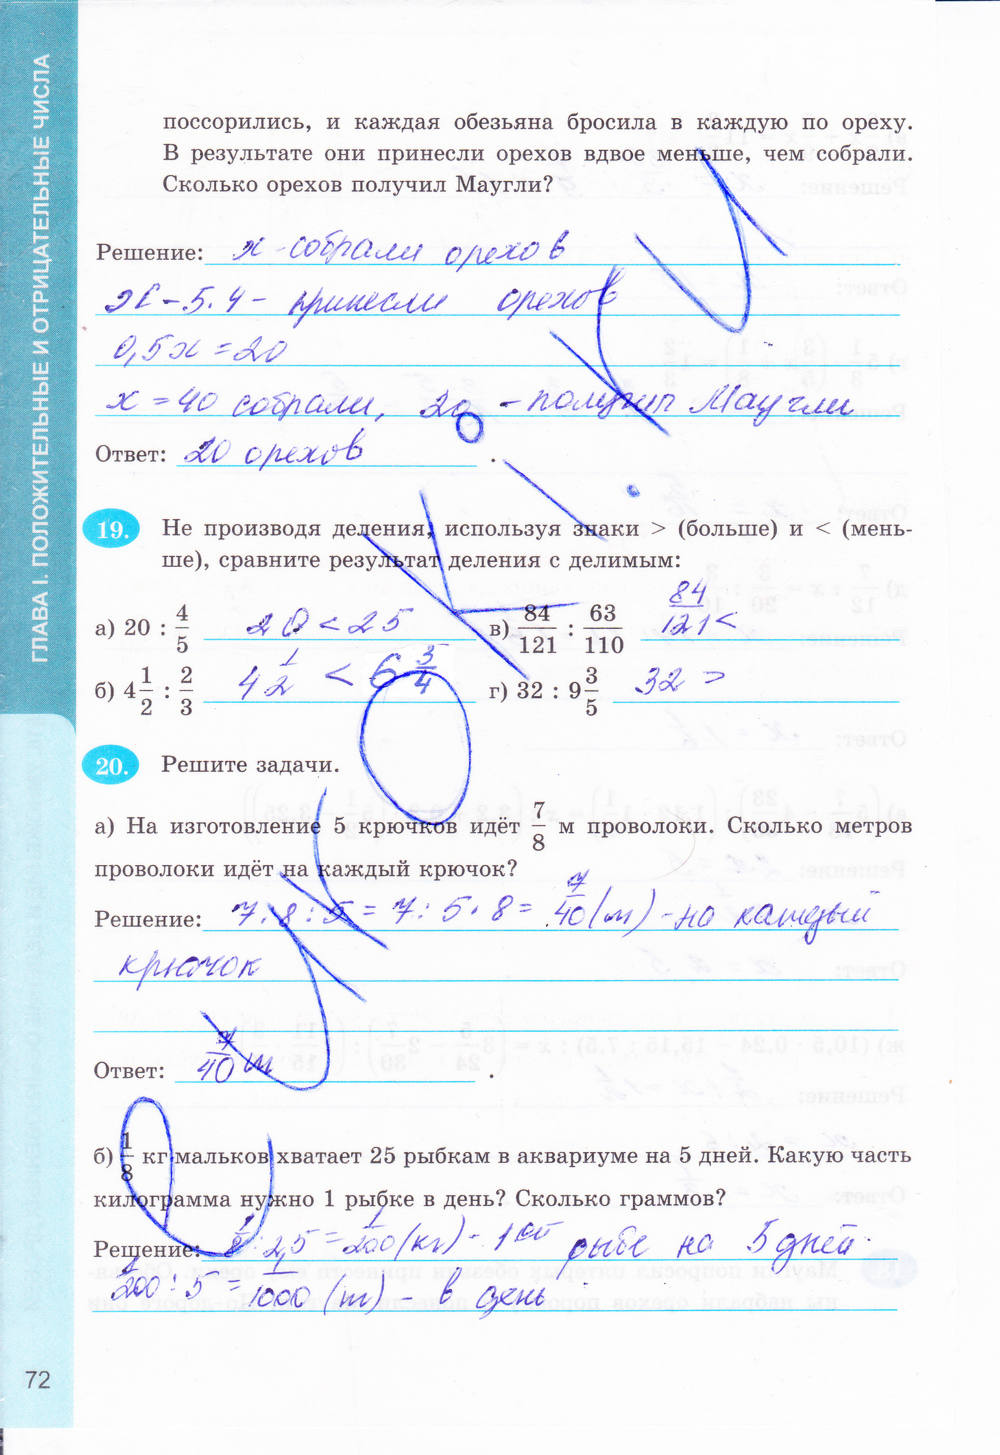 ГЛАВА I. ПОЛОЖИТЕЛЬНЫЕ И ОТРИЦАТЕЛЬНЫЕ ЧИСЛА
поссорились, и каждая обезьяна бросила в каждую по ореху.
В результате они принесли орехов вдвое меньше, чем собрали.
Сколько орехов получил Маугли?
Решение: x - собрали орехов
x - 5.4 - принесли орехов
0,5x = 20
x = 40 собрали, 20 - получил Маугли
Ответ: 20 орехов .
19. Не производя деления, используя знаки > (больше) и < (мень-
ше), сравните результат деления с делимым:
а) 20 : 4/5 20 < 25 в) 84/121 : 63/110 84/121 <
б) 4 1/2 : 2/3 4 1/2 < 6 3/4 г) 32 : 9 3/5 32 >
20. Решите задачи.
а) На изготовление 5 крючков идёт 7/8 м проволоки. Сколько метров
проволоки идёт на каждый крючок?
Решение: 7 : 8 : 5 = 7 : 5 . 8 = 7/40 (м) - на каждый
крючок
Ответ: 7/40 м .
б) 1/8 кг мальков хватает 25 рыбкам в аквариуме на 5 дней. Какую часть
килограмма нужно 1 рыбке в день? Сколько граммов?
Решение: 1/8 : 2,5 = 1/200 (кг) - 1 ой рыбе на 5 дней.
1/200 : 5 = 1/1000 (т) - в день
72